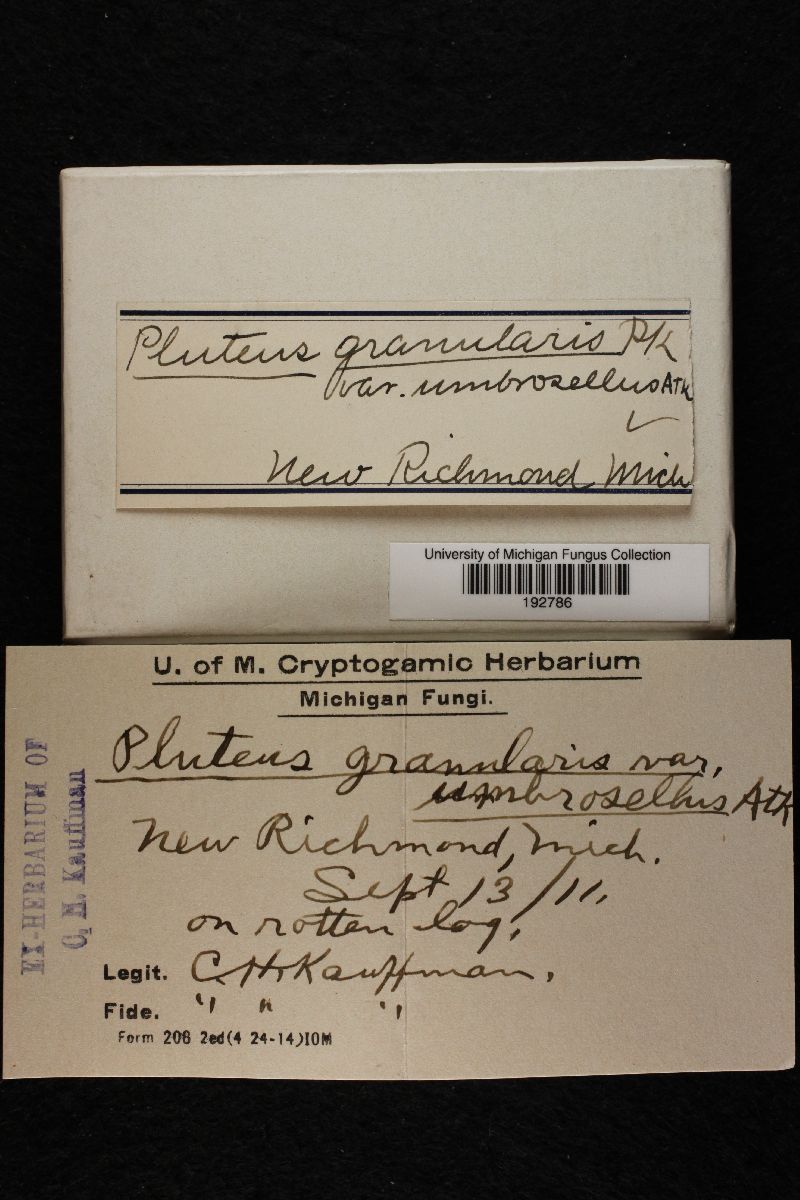 Pluteus granularis Pk
var. umbrosellus Atk
✓
New Richmond Mich
University of Michigan Fungus Collection
192786
U. of M. Cryptogamic Herbarium
Michigan Fungi.
Pluteus granularis var.
umbrosellus Atk
New Richmond, Mich.
Sept 13/11.
on rotten log.
Legit. C. H. Kauffman.
Fide. " " "
Form 208 2ed(4 24-14)10M
EX-HERBARIUM OF
C. H. Kauffman